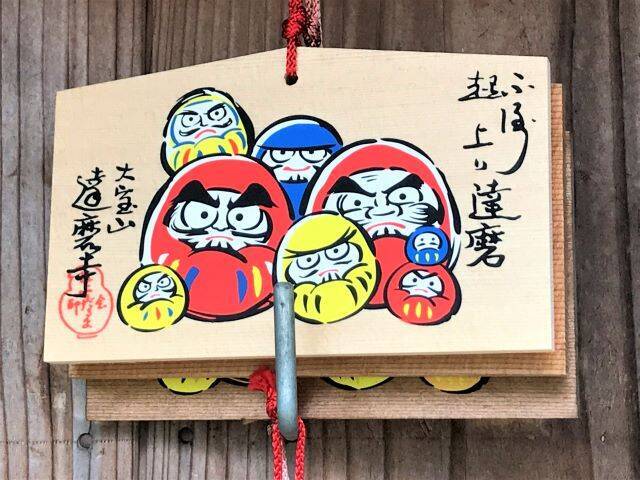 起上り達磨
大宝山
達磨寺